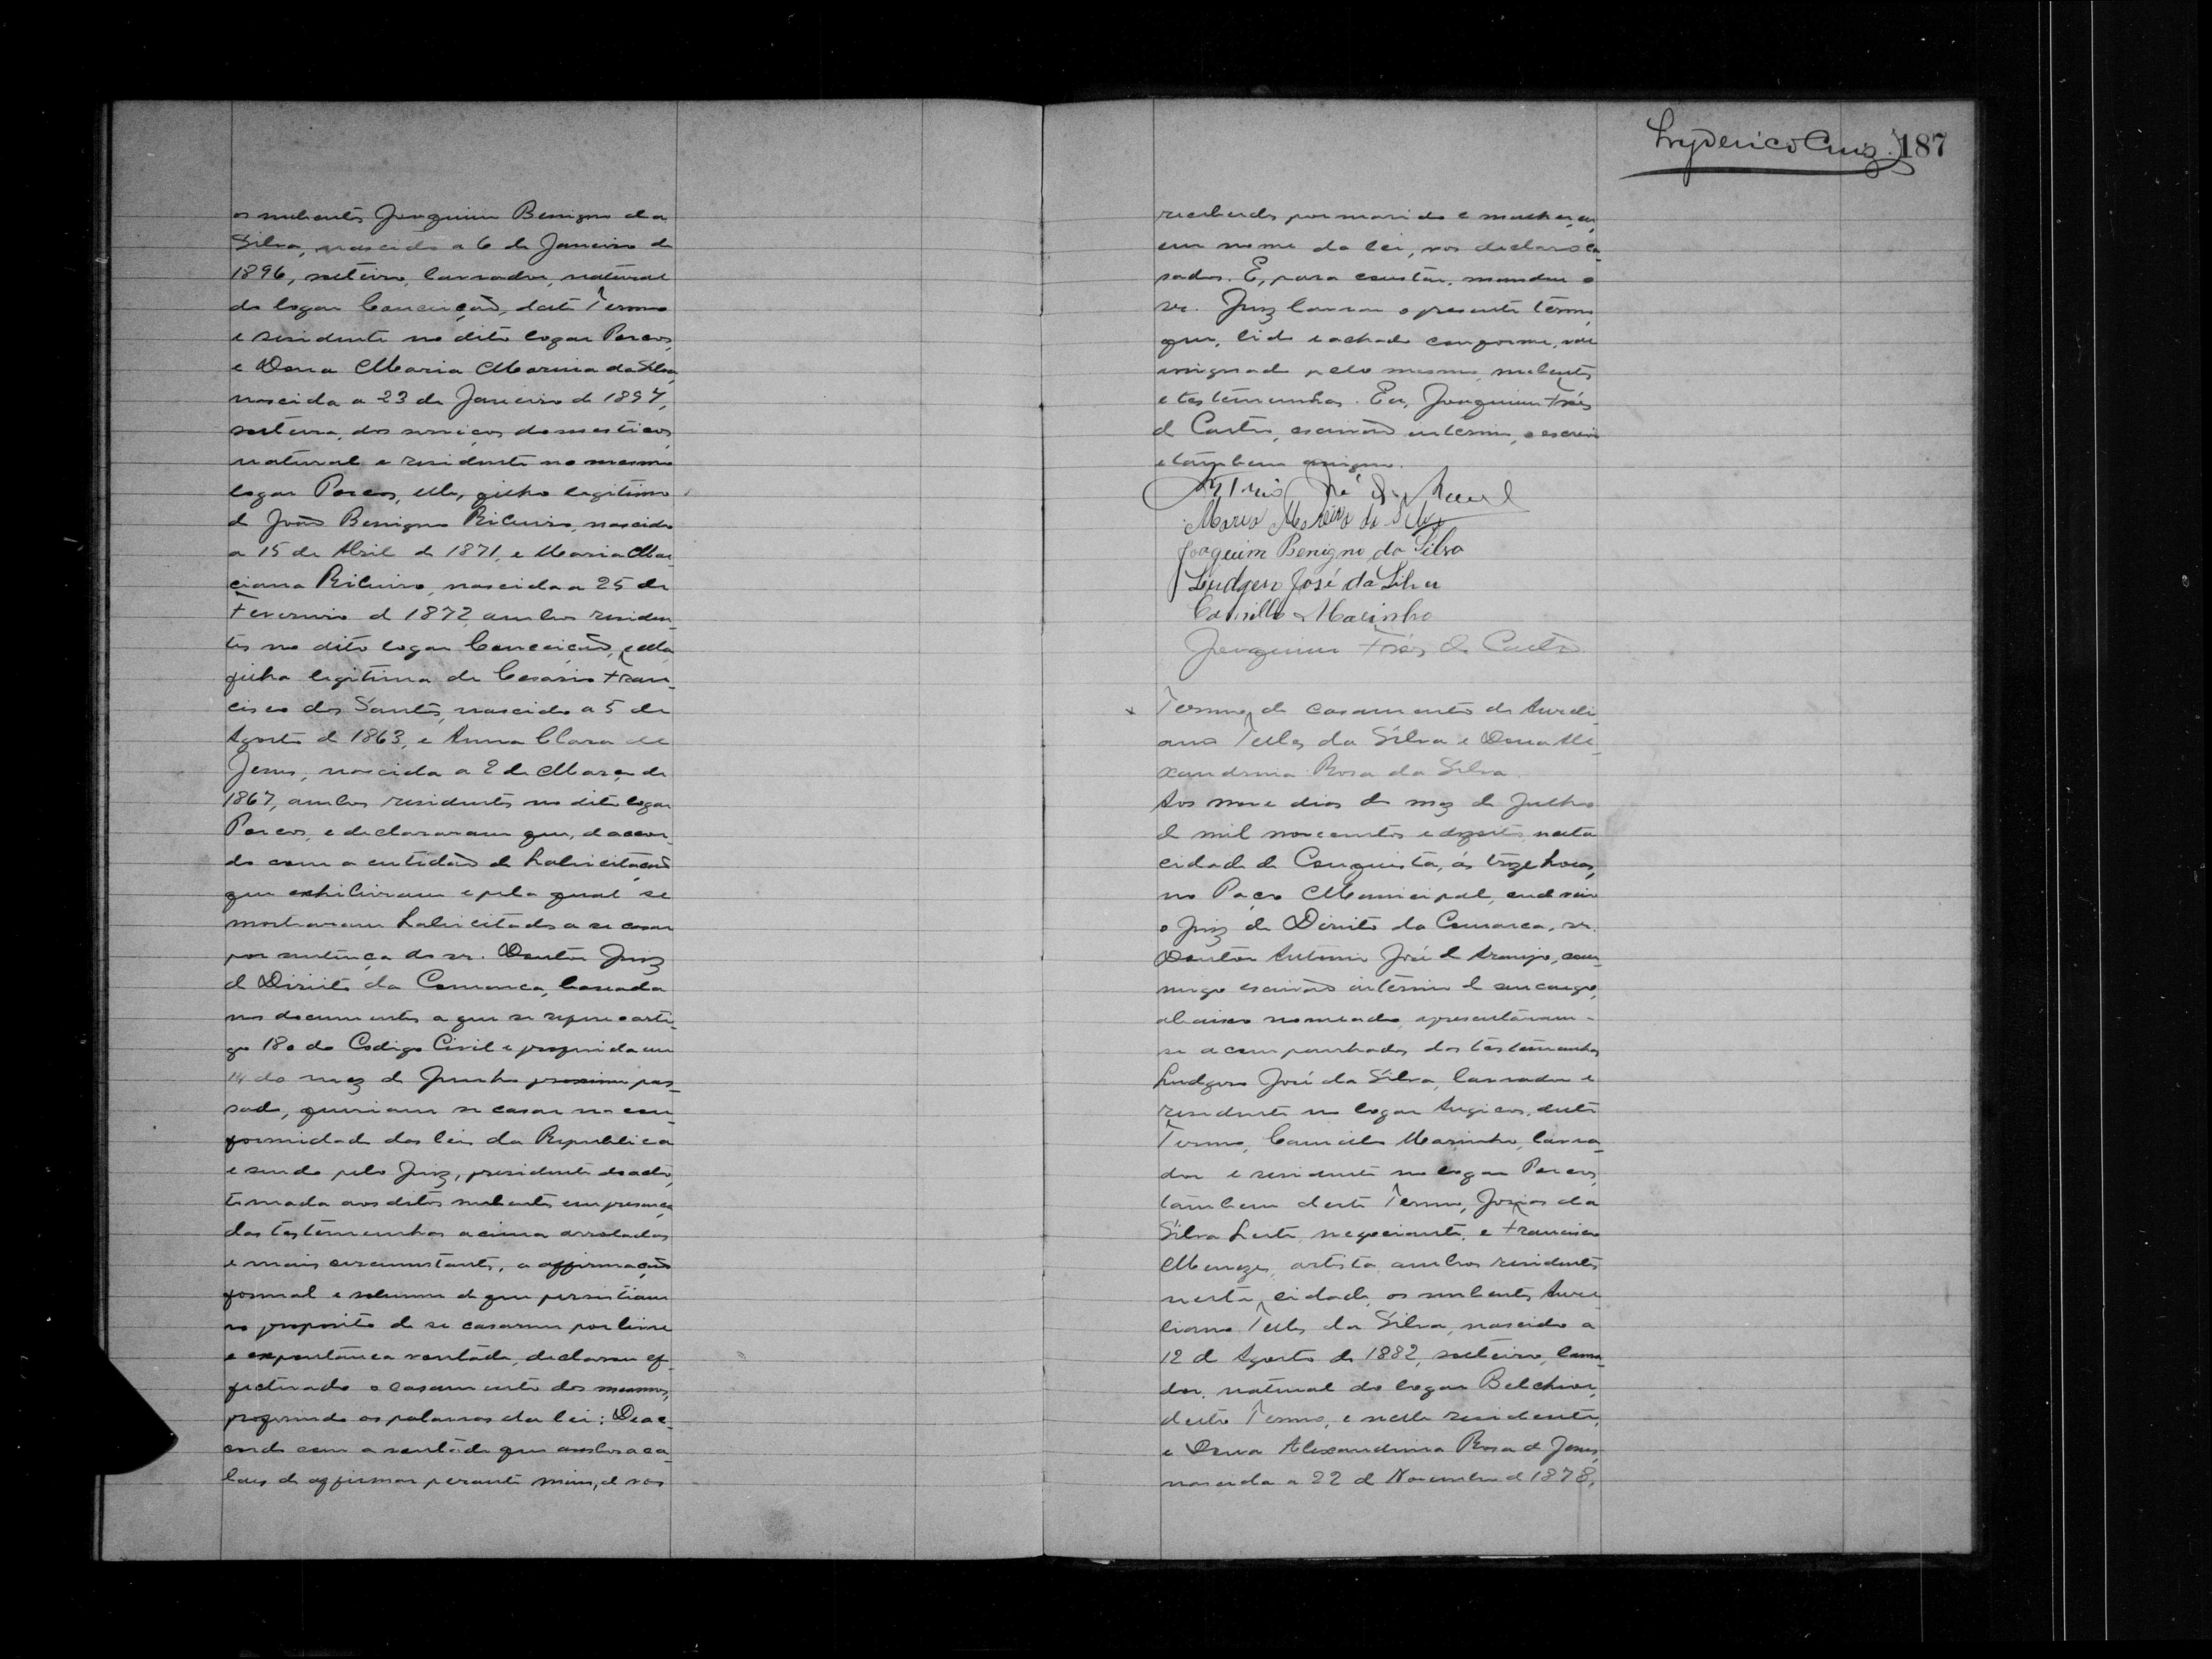 os nubentes Joaquim Benigno da
Silva, nascido a 6 de Janeiro de
1896, solteiro, lavrador, natural
do logar Conceição, deste Termo
e residente no dito logar Poscos,
e Dona Maria Marina da Silva,
nascida a 23 de Janeiro de 1897,
solteira, dos serviços domesticos,
natural e residente no mesmo
logar Poscos, elle, filho legitimo
de João Benigno Ribeiro, nascido
a 15 de Abril de 1871, e Maria Mar
ciana Ribeiro, nascida a 25 de
Fevereiro de 1872, ambos residen-
tes no dito logar Conceição, e ella
filha legitima de Cesario Fran-
cisco dos Santos, nascido a 5 de
Agosto de 1863, e Anna Clara de
Jesus, nascida a 2 de Março de
1867, ambos residentes no dito logar
Poscos, e declararam que, de accor-
do com a certidão de habilitação
que exhibiram e pela qual se
mostraram habilitados a se casar
por sentença do sr. Doutor Juiz
de Direito da Comarca, baseada
nos documentos a que se refere o arti-
go 180 do Codigo Civil e proferida em
14 do mez de Junho proximo pas-
sado, queriam se casar na con-
formidade das leis da Republica
e sendo pelo Juiz, presidente do acto,
tomada aos ditos nubentes em presença
das testemunhas acima arroladas
e mais circumstantes, a affirmação
formal e solemne de que persistiam
no proposito de se casarem por livre
e expontânea vontade, declarou ef-
fectuado o casamento dos mesmos,
proferindo as palavras da lei: De ac-
cordo com a vontade que ambos aca-
baes de affirmar perante mim, de vos
Lyderico Cruz. 187
receberdes por marido e mulher, eu,
em nome da lei, vos declaro ca-
sados. E, para constar, mandou o
sr. Juiz lavrar o presente termo,
que, lido e achado conforme, vae
assignado pelo mesmo, nubentes
e testemunhas. Eu, Joaquim Fróes
de Castro, escrivão interino, o escrevi
e tambem assigno.
Maria Marina da Silva
Joaquim Benigno da Silva
Ludgero José da Silva
Camillo Marinho
Joaquim Fróes de Castro
Termo de casamento de Aureli-
ano Telles da Silva e Dona Ale-
xandrina Rosa da Silva.
Aos nove dias do mez de Julho
de mil novecentos e dezoito, nesta
cidade de Conquista, ás treze horas,
no Paço Municipal, onde veio
o Juiz de Direito da Comarca, sr.
Doutor Antonio José de Araujo, com-
migo escrivão interino de seu cargo,
abaixo nomeado, apresentaram-
se acompanhados das testemunhas
Ludgero José da Silva, lavrador e
residente no logar Angicos, deste
Termo, Camillo Marinho, lavra-
dor e residente no logar Poscos,
tambem deste Termo, Josias da
Silva Leite, negociante, e Francisco
Menezes, artista, ambos residentes
nesta cidade, os nubentes Aure-
liano Telles da Silva, nascido a
12 de Agosto de 1882, solteiro, lavra-
dor, natural do logar Belchior,
deste Termo, e nelle residente,
e Dona Alexandrina Rosa de Jesus,
nascida a 22 de Novembro de 1878,